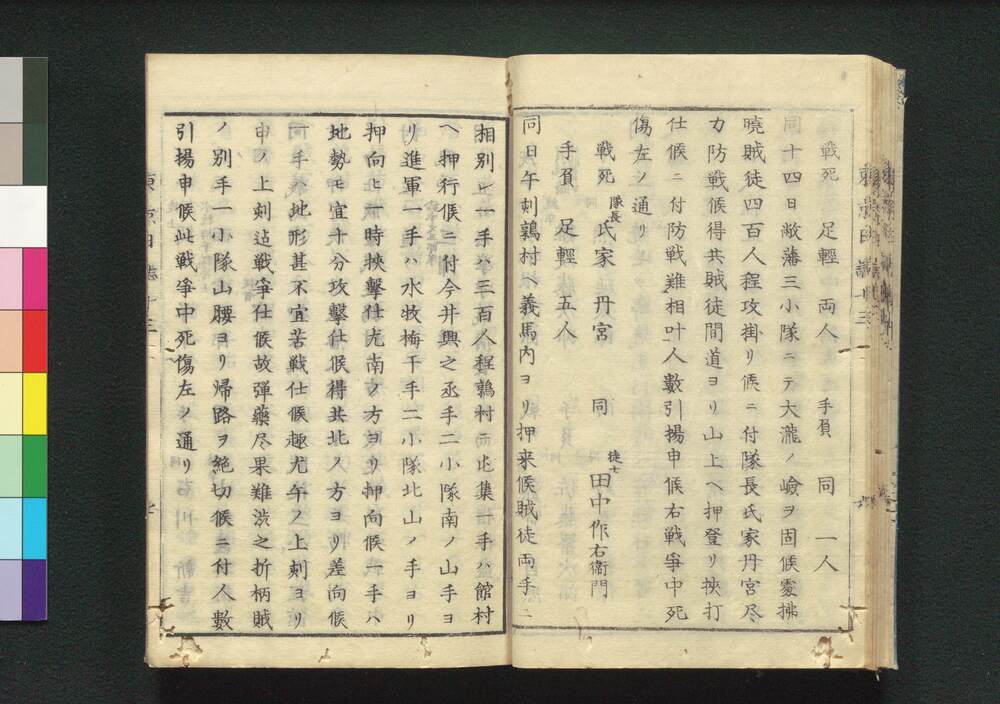 戦死 足輕 両人 手負 同 一人
同十四日敵藩三小隊ニテ大瀧ノ嶮ヲ固候處拂
曉賊徒四百人程攻掛リ候ニ付隊長氏家丹宮尽
力防戦候得共賊徒間道ヨリ山上ヘ押登リ挾打
仕候ニ付防戦難相叶人數引揚申候右戦爭中死
傷左ノ通リ
戦死 隊長 氏家丹宮 同 徒士 田中作右衞門
手負 足輕 五人
同日午刻鶉村ヘ義馬内ヨリ押来候賊徒両手ニ
相別レ一手ハ三百人程鶉村ニ屯集惜手ハ館村
ヘ押行候ニ付今井興之丞手二小隊南ノ山手ヨ
リ進軍一手ハ水牧梅干手二小隊北山ノ手ヨリ
押向ヒ一時挾擊仕尤南ノ方ヨリ押向候一手ハ
地勢モ宜十分攻擊仕候得共北ノ方ヨリ差向候
一手ハ地形甚不宜苦戦仕候趣尤午ノ上刻ヨリ
申ノ上刻迠戦爭仕候故弾藥尽果難渋之折柄賊
ノ別手一小隊山腰ヨリ帰路ヲ絶切候ニ付人數
引揚申候此戦爭中死傷左ノ通リ